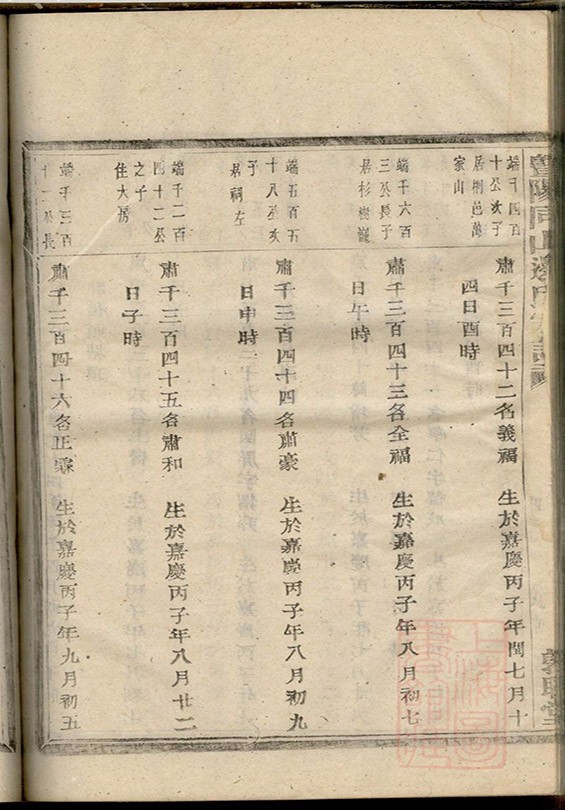 端千四百
十公次子
居桐邑萬
家山
肅千三百四十二名義福 生於嘉慶丙子年閏七月十
四日酉時
端千六百
三公長子
居杉樹
肅千三百四十三名全福 生於嘉慶丙子年八月初七
日午時
端五百五
十八公次
子
居祠左
肅千三百四十四名肅豪 生於嘉慶丙子年八月初九
日申時
端千二百
四十二公
之子
住大房
肅千三百四十五名肅和 生於嘉慶丙子年八月廿二
日子時
端千三百
十二公長
肅千三百四十六名正 生於嘉慶丙子年九月初五